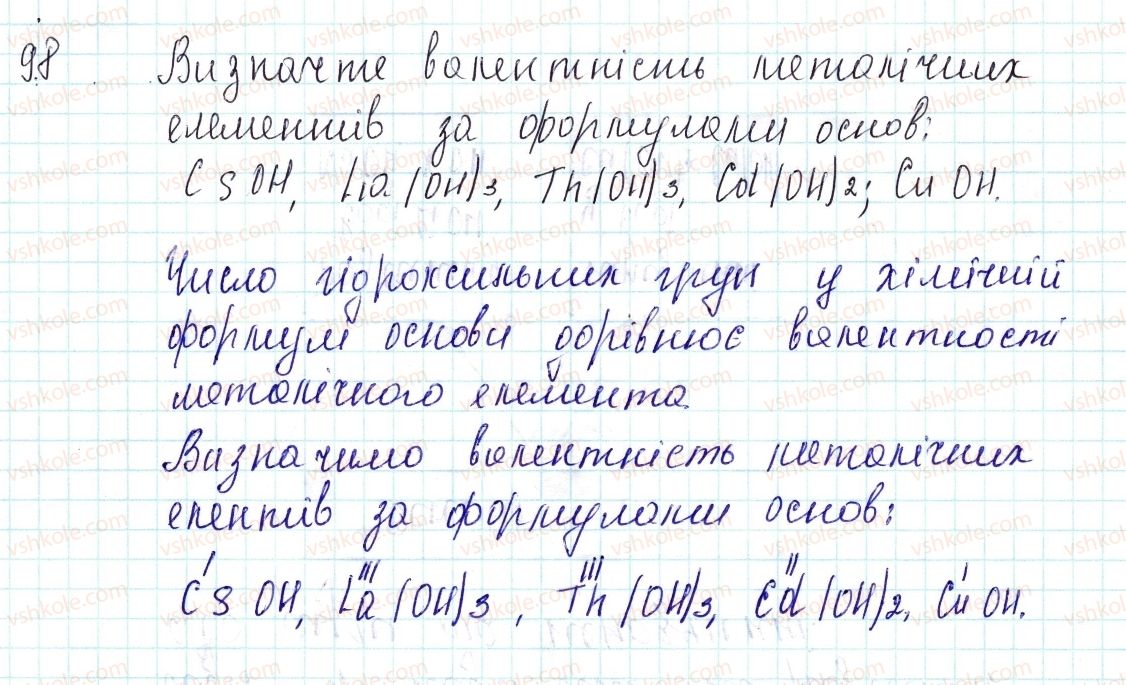 98 Визначте валентність металічних
елементів за формулами основ:
CsOH, La(OH)3, Th(OH)3, Cd(OH)2; CuOH.
Число гідроксильних груп у хімічній
формулі основи дорівнює валентності
металічного елемента.
Визначимо валентність металічних
елентів за формулами основ:
I III III II I
CsOH, La(OH)3, Th(OH)3, Cd(OH)2, CuOH.
vshkole.com